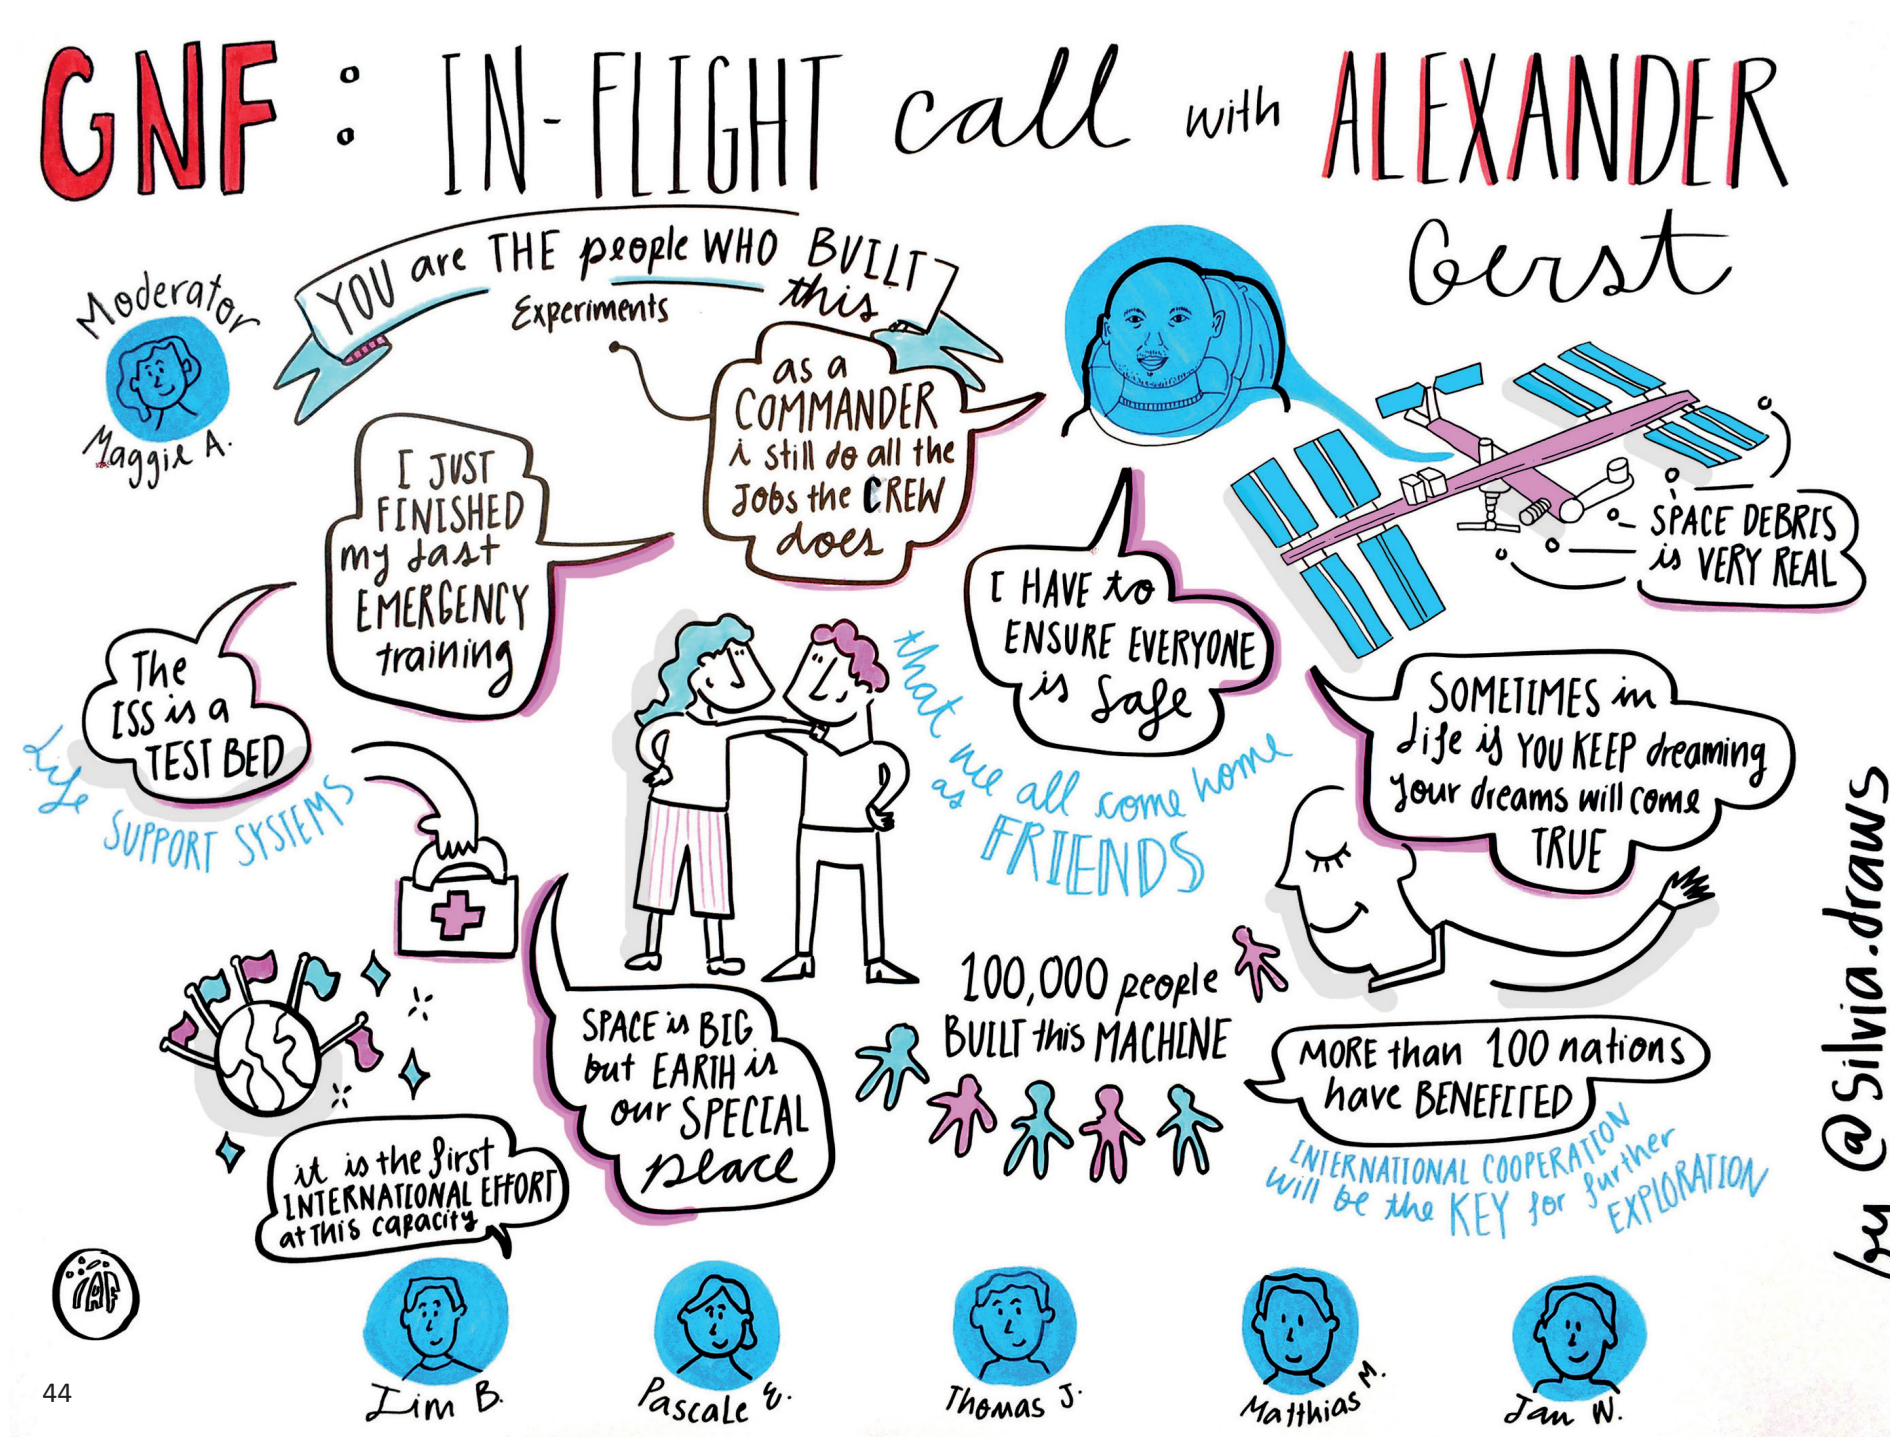 GNF: IN-FLIGHT call with ALEXANDER
Gerst
Moderator
Maggie A.
YOU are THE people WHO BUILT
this
Experiments
as a
COMMANDER
i still do all the
Jobs the CREW
does
I JUST
FINISHED
my last
EMERGENCY
training
The
ISS is a
TEST BED
Life SUPPORT SYSTEMS
I HAVE to
ENSURE EVERYONE
is safe
that we all come home
as
FRIENDS
SPACE DEBRIS
is VERY REAL
SOMETIMES in
life is YOU KEEP dreaming
your dreams will come
TRUE
SPACE is BIG
but EARTH is
our SPECIAL
place
100,000 people
BUILT this MACHINE
MORE than 100 nations
have BENEFITED
INTERNATIONAL COOPERATION
will be the KEY for further
EXPLORATION
it is the first
INTERNATIONAL EFFORT
at this capacity
IAF
by @silvia.draws
44
Jim B.
Pascale E.
Thomas J.
Matthias M.
Jan W.